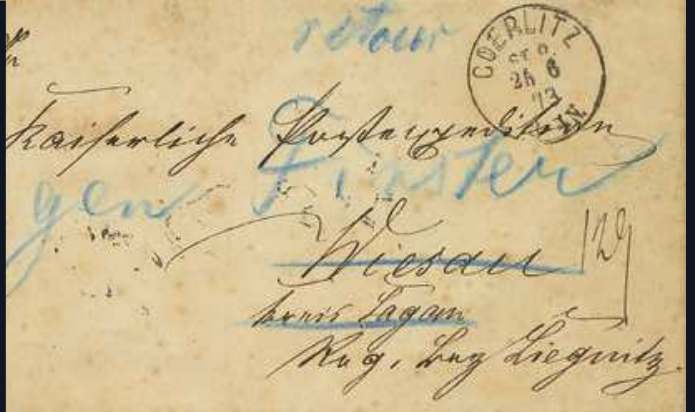 retour
GOERLITZ
25 6
73
Kaiserliche Postexpedition
gen Finster
Wiesau
Kreis Sagan
Reg. Bez Liegnitz